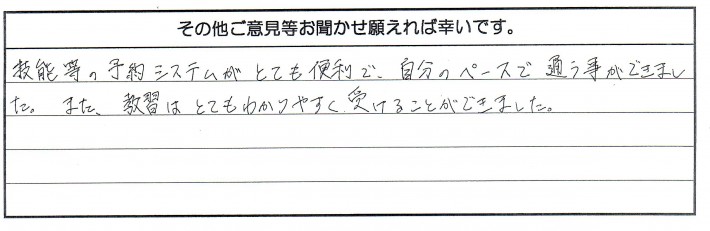 その他ご意見等お聞かせ願えれば幸いです。
技能等の予約システムがとても便利で、自分のペースで通う事ができまし
た。また、教習はとてもわかりやすく受けることができました。